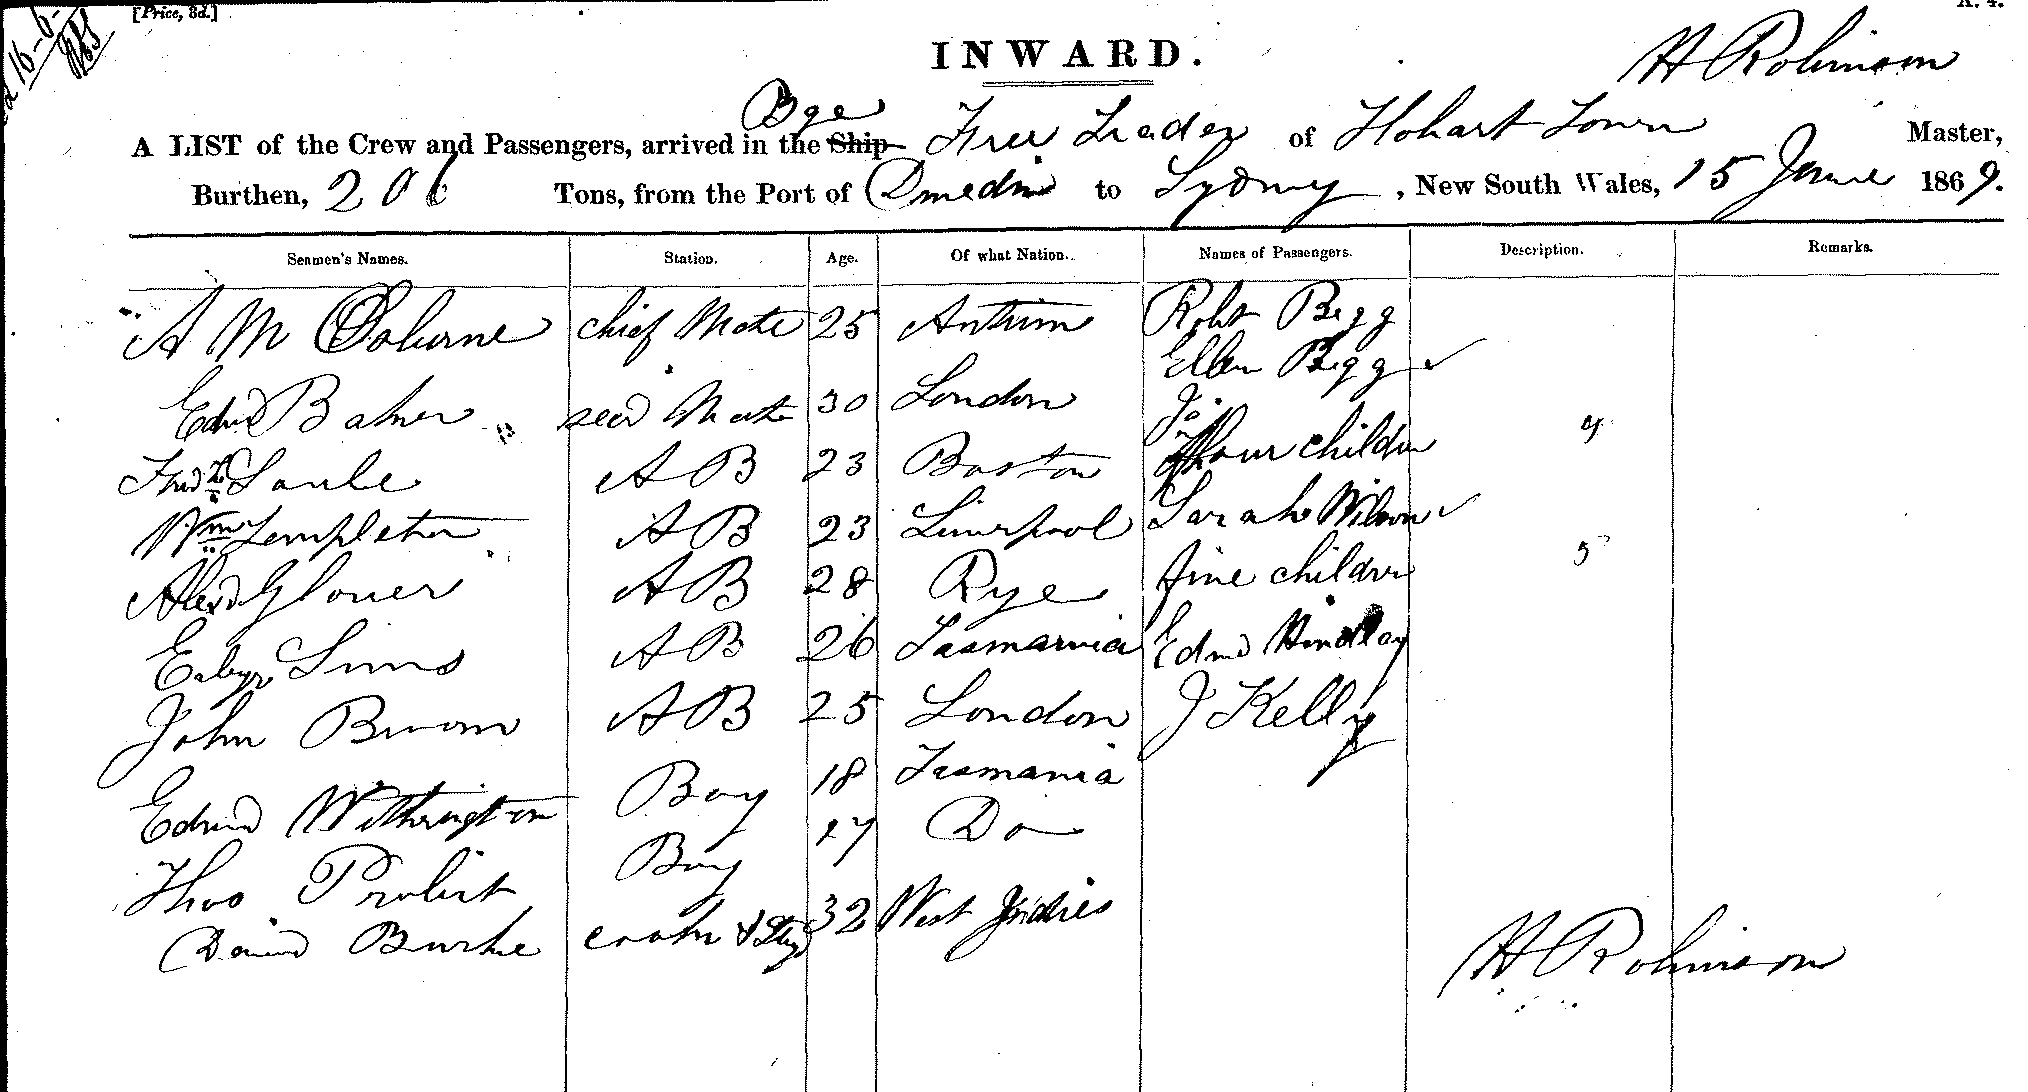 [Price, 3d.]
A. 4.
INWARD.
H Robinson
Bge
A LIST of the Crew and Passengers, arrived in the Ship Free Trader of Hobart Town Master,
Burthen, 206 Tons, from the Port of Dunedin to Sydney, New South Wales, 15 June 1869.
Seamen's Names. Station. Age. Of what Nation. Names of Passengers. Description. Remarks.
A M Osborne chief Mate 25 Antrim Robt Bigg
Ellen Bigg
Edwd Baker secd Mate 30 London
Fredk Saule AB 23 Boston four children 4
Wm Templeton AB 23 Liverpool Sarah Wilson
Alexd Glover AB 28 Rye five children 5
Sims AB 26 Tasmania Edmd
John Brown AB 25 London J Kelly
Edwd Witherington Boy 18 Tasmania
Thos Probert Boy 17 Do
David Burke cook & Stwd 32 West Indies
H Robinson